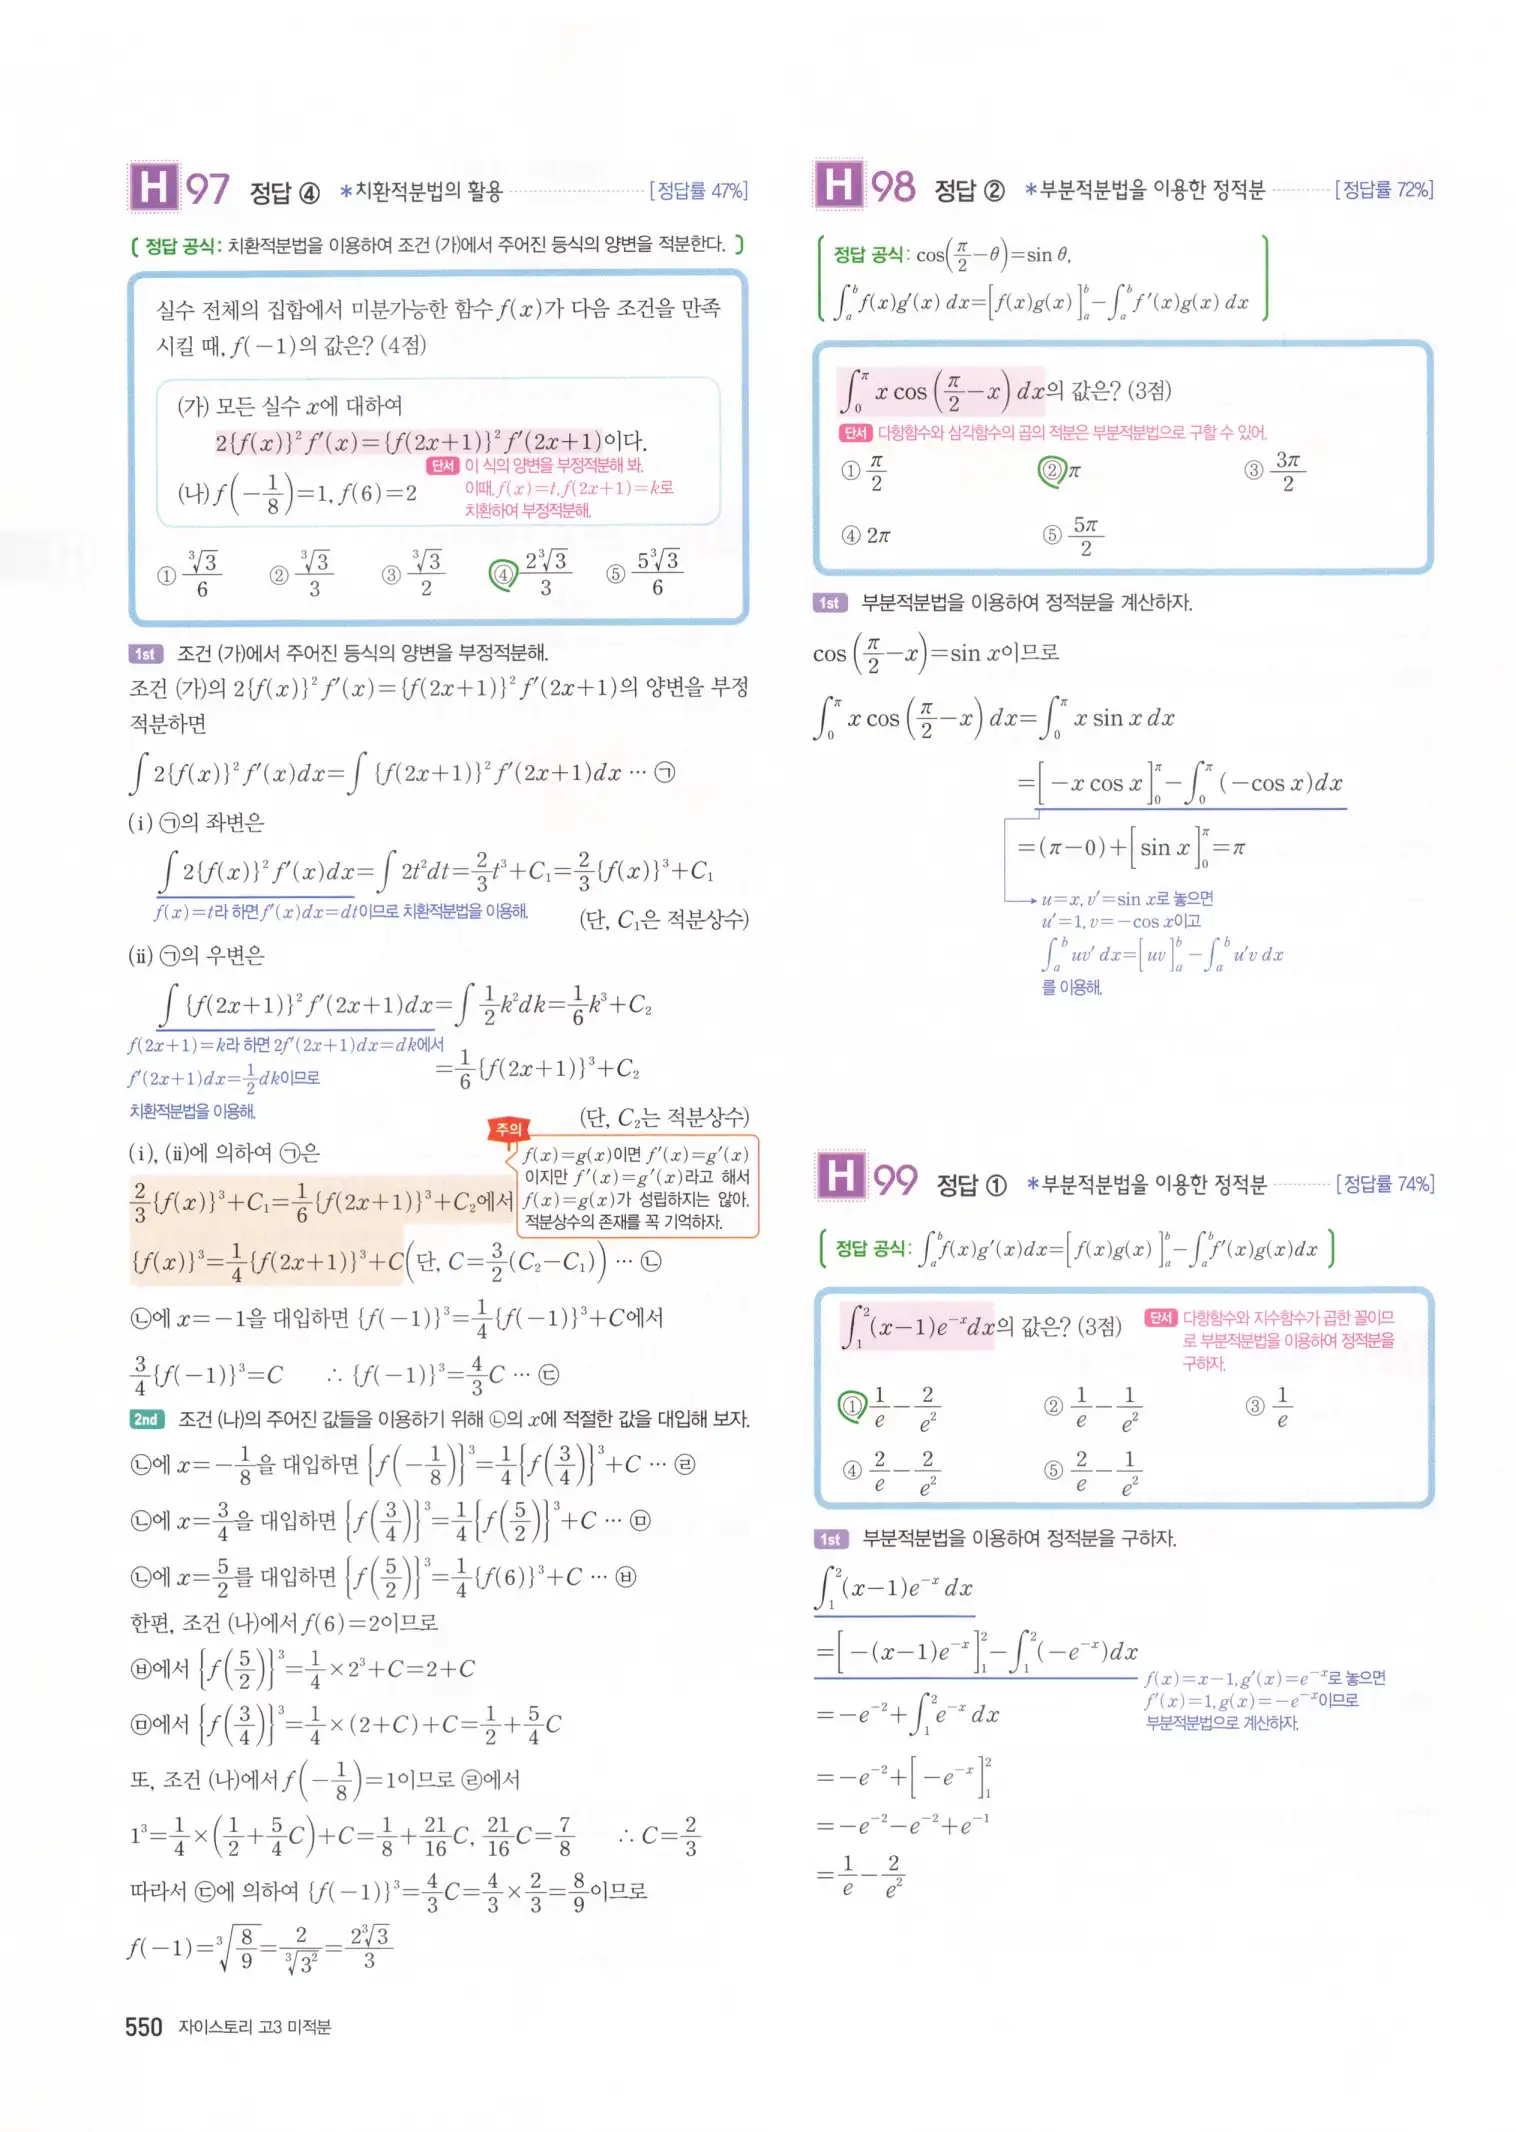 H 97 정답 ④ *치환적분법의 활용 [정답률 47%]
( 정답 공식: 치환적분법을 이용하여 조건 (가)에서 주어진 등식의 양변을 적분한다. )
실수 전체의 집합에서 미분가능한 함수 f(x)가 다음 조건을 만족
시킬 때, f(−1)의 값은? (4점)
(가) 모든 실수 x에 대하여
2{f(x)}²f′(x)={f(2x+1)}²f′(2x+1)이다.
단서 이 식의 양변을 부정적분해 봐.
(나) f(−1/8)=1, f(6)=2
이때, f(x)=t, f(2x+1)=k로
치환하여 부정적분해.
① ∛3/6 ② ∛3/3 ③ ∛3/2 ④ 2∛3/3 ⑤ 5∛3/6
1st 조건 (가)에서 주어진 등식의 양변을 부정적분해.
조건 (가)의 2{f(x)}²f′(x)={f(2x+1)}²f′(2x+1)의 양변을 부정
적분하면
∫2{f(x)}²f′(x)dx=∫{f(2x+1)}²f′(2x+1)dx ⋯ ㉠
(i) ㉠의 좌변은
∫2{f(x)}²f′(x)dx=∫2t²dt=2/3t³+C₁=2/3{f(x)}³+C₁
f(x)=t라 하면 f′(x)dx=dt이므로 치환적분법을 이용해.
(단, C₁은 적분상수)
(ii) ㉠의 우변은
∫{f(2x+1)}²f′(2x+1)dx=∫1/2k²dk=1/6k³+C₂
f(2x+1)=k라 하면 2f′(2x+1)dx=dk에서
=1/6{f(2x+1)}³+C₂
f′(2x+1)dx=1/2dk이므로
치환적분법을 이용해.
(단, C₂는 적분상수)
(i), (ii)에 의하여 ㉠은
2/3{f(x)}³+C₁=1/6{f(2x+1)}³+C₂에서
주의
f(x)=g(x)이면 f′(x)=g′(x)
이지만 f′(x)=g′(x)라고 해서
f(x)=g(x)가 성립하지는 않아.
적분상수의 존재를 꼭 기억하자.
{f(x)}³=1/4{f(2x+1)}³+C(단, C=3/2(C₂−C₁)) ⋯ ㉡
㉡에 x=−1을 대입하면 {f(−1)}³=1/4{f(−1)}³+C에서
3/4{f(−1)}³=C ∴ {f(−1)}³=4/3C ⋯ ㉢
2nd 조건 (나)의 주어진 값들을 이용하기 위해 ㉡의 x에 적절한 값을 대입해 보자.
㉡에 x=−1/8을 대입하면 {f(−1/8)}³=1/4{f(3/4)}³+C ⋯ ㉣
㉡에 x=3/4을 대입하면 {f(3/4)}³=1/4{f(5/2)}³+C ⋯ ㉤
㉡에 x=5/2를 대입하면 {f(5/2)}³=1/4{f(6)}³+C ⋯ ㉥
한편, 조건 (나)에서 f(6)=2이므로
㉥에서 {f(5/2)}³=1/4×2³+C=2+C
㉤에서 {f(3/4)}³=1/4×(2+C)+C=1/2+5/4C
또, 조건 (나)에서 f(−1/8)=1이므로 ㉣에서
1³=1/4×(1/2+5/4C)+C=1/8+21/16C, 21/16C=7/8 ∴ C=2/3
따라서 ㉢에 의하여 {f(−1)}³=4/3C=4/3×2/3=8/9이므로
f(−1)=∛(8/9)=2/∛3²=2∛3/3
550 자이스토리 고3 미적분
H 98 정답 ② *부분적분법을 이용한 정적분 [정답률 72%]
정답 공식: cos(π/2−θ)=sin θ,
∫ₐᵇf(x)g′(x) dx=[f(x)g(x)]ₐᵇ−∫ₐᵇf′(x)g(x) dx
∫₀^π x cos(π/2−x) dx의 값은? (3점)
단서 다항함수와 삼각함수의 곱의 적분은 부분적분법으로 구할 수 있어.
① π/2 ② π ③ 3π/2
④ 2π ⑤ 5π/2
1st 부분적분법을 이용하여 정적분을 계산하자.
cos(π/2−x)=sin x이므로
∫₀^π x cos(π/2−x) dx=∫₀^π x sin x dx
=[−x cos x]₀^π−∫₀^π(−cos x)dx
=(π−0)+[sin x]₀^π=π
u=x, v′=sin x로 놓으면
u′=1, v=−cos x이고
∫ₐᵇuv′ dx=[uv]ₐᵇ−∫ₐᵇu′v dx
를 이용해.
H 99 정답 ① *부분적분법을 이용한 정적분 [정답률 74%]
( 정답 공식: ∫ₐᵇf(x)g′(x)dx=[f(x)g(x)]ₐᵇ−∫ₐᵇf′(x)g(x)dx )
∫₁²(x−1)e⁻ˣdx의 값은? (3점)
단서 다항함수와 지수함수가 곱한 꼴이므
로 부분적분법을 이용하여 정적분을
구하자.
① 1/e−2/e² ② 1/e−1/e² ③ 1/e
④ 2/e−2/e² ⑤ 2/e−1/e²
1st 부분적분법을 이용하여 정적분을 구하자.
∫₁²(x−1)e⁻ˣ dx
=[−(x−1)e⁻ˣ]₁²−∫₁²(−e⁻ˣ)dx
f(x)=x−1, g′(x)=e⁻ˣ로 놓으면
f′(x)=1, g(x)=−e⁻ˣ이므로
부분적분법으로 계산하자.
=−e⁻²+∫₁²e⁻ˣ dx
=−e⁻²+[−e⁻ˣ]₁²
=−e⁻²−e⁻²+e⁻¹
=1/e−2/e²